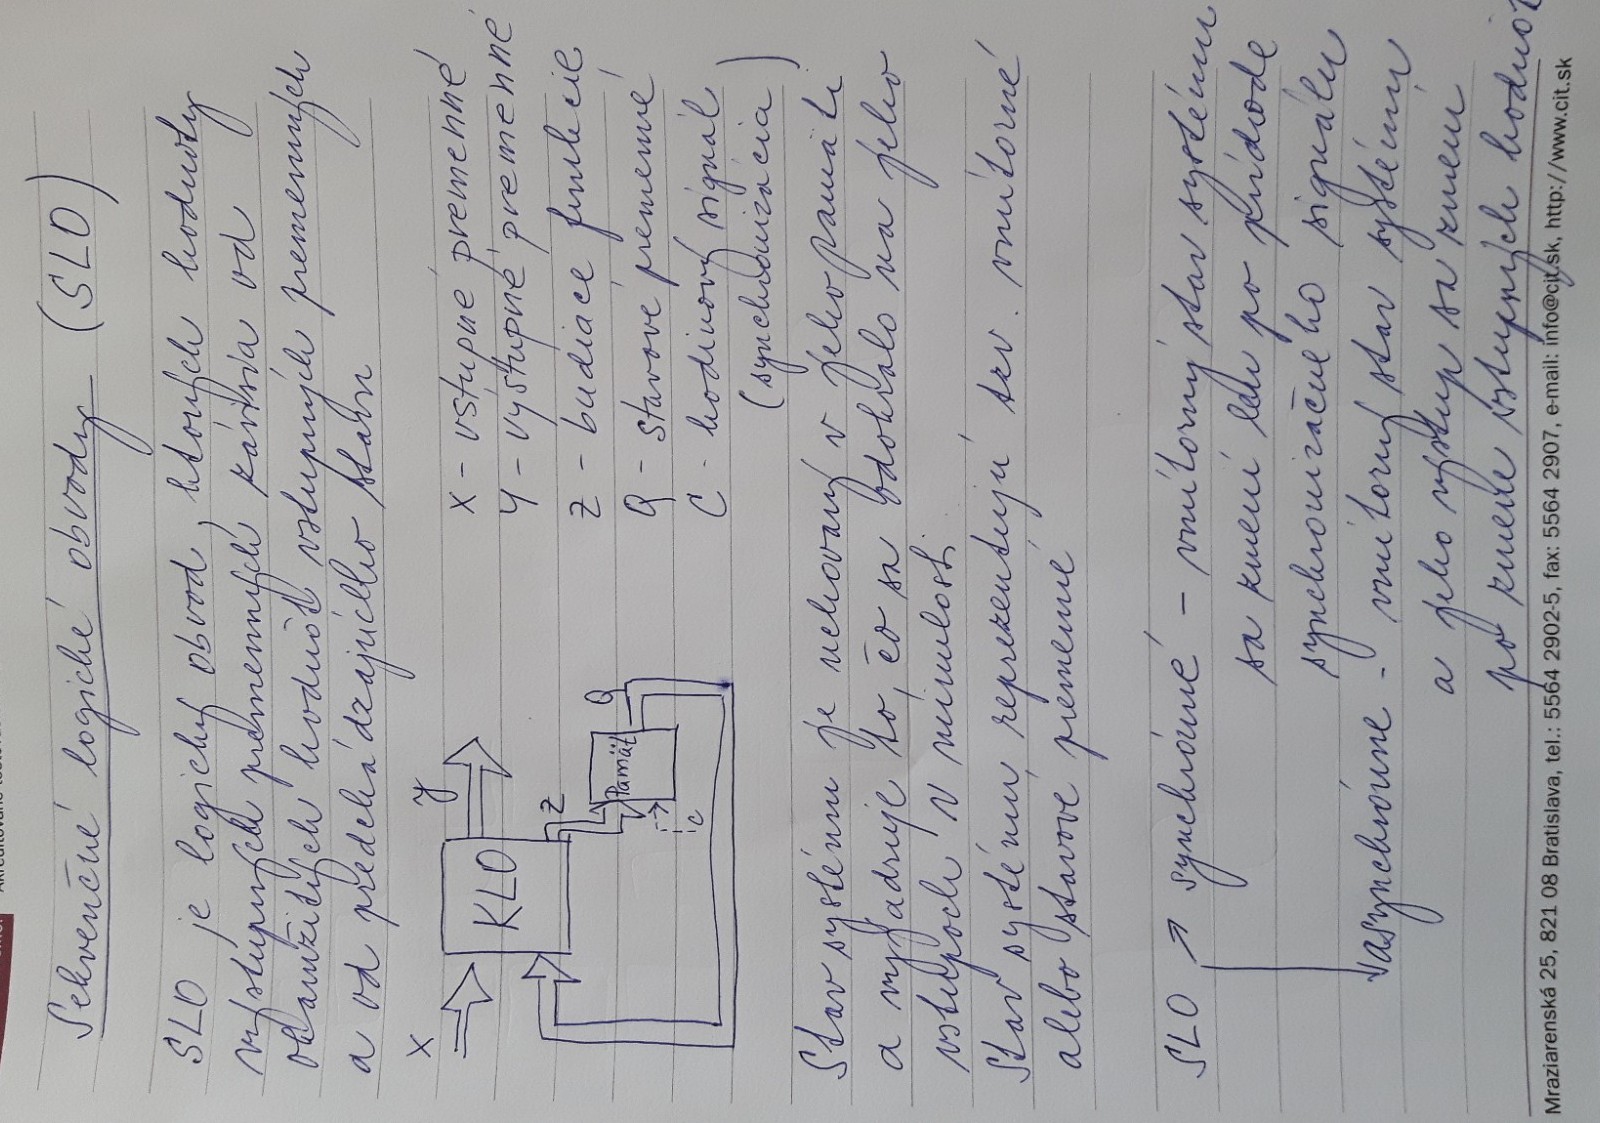 Akreditované
Sekvenčné logické obvody (SLO)
SLO je logický obvod, ktorých hodnoty
výstupných premenných závisia od
okamžitých hodnôt vstupných premenných
a od predchádzajúceho stavu
X
y
KLO
Z
Pamäť
Q
C
X - vstupné premenné
Y - výstupné premenné
Z - budiace funkcie
Q - stavové premenné
C - hodinový signál
(synchronizácia)
Stav systému je uchovaný v jeho pamäti
a vyjadruje to, čo sa odohralo na jeho
vstupoch v minulosti
Stav systému reprezentujú tzv. vnútorné
alebo stavové premenné
SLO ↗ synchrónné - vnútorný stav systému
sa zmení len po príchode
synchronizačného signálu
asynchrónne - vnútorný stav systému
a jeho výstup sa zmení
po zmene vstupných hodnôt
Mraziarenská 25, 821 08 Bratislava, tel.: 5564 2902-5, fax: 5564 2907, e-mail: info@cit.sk, http://www.cit.sk